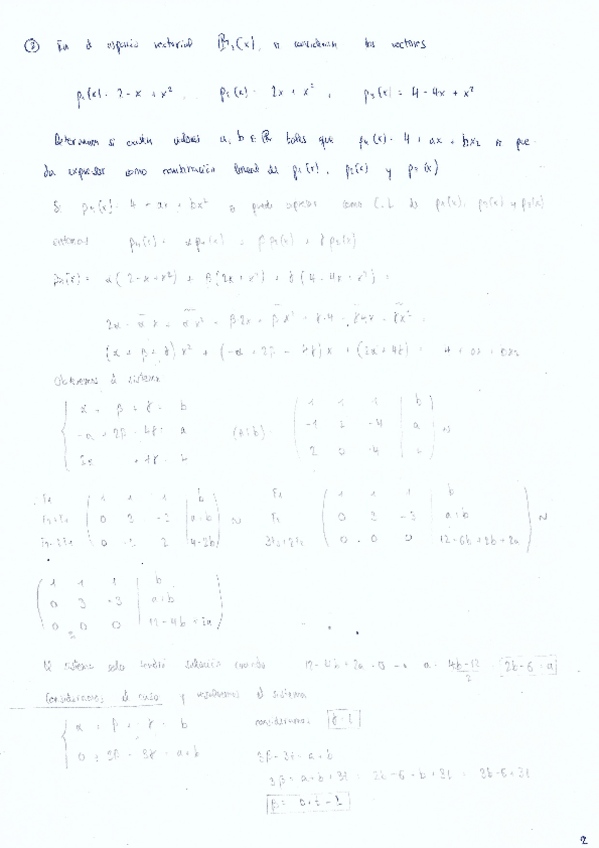 ② En el espacio vectorial ℝ₂(x), se consideran los vectores
p₁(x) = 2 - x + x² , p₂(x) = 2x + x² , p₃(x) = 4 - 4x + x²
Determinar si existen valores a, b ∈ ℝ tales que p₄(x) = 4 + ax + bx² se pue-
da expresar como combinación lineal de p₁(x), p₂(x) y p₃(x)
Si p₄(x) = 4 + ax + bx² se puede expresar como C.L de p₁(x), p₂(x) y p₃(x)
entonces p₄(x) = αp₁(x) + βp₂(x) + γp₃(x)
p₄(x) = α(2-x+x²) + β(2x+x²) + γ(4-4x+x²) =
2α - αx + αx² + β2x + βx² + γ4 - γ4x + γx² =
(α + β + γ)x² + (-α + 2β - 4γ)x + (2α + 4γ) = 4 + ax + bx²
Obtenemos el sistema
α + β + γ = b
-α + 2β - 4γ = a
(A|b) =
1 1 1 | b
-1 2 -4 | a
2 0 4 |
F₁ 1 1 1 | b
0 3 -3 | a+b
0 -2 2 | 4-2b
~
F₁ 1 1 1 | b
F₂ 0 3 -3 | a+b
3F₃+2F₂ 0 0 0 | 12-6b+2b+2a
~
1 1 1 | b
0 3 -3 | a+b
0 0 0 | 12-4b+2a
El sistema solo tendrá solución cuando 12-4b+2a = 0 → a = 4b-12/2 = 2b-6 = a
Consideramos el caso y resolvemos el sistema
α + β + γ = b
0 + 3β - 3γ = a+b
consideramos γ = t
3β - 3t = a+b
3β = a+b+3t = 2b-6+b+3t = 3b-6+3t
β = b+t-2
2